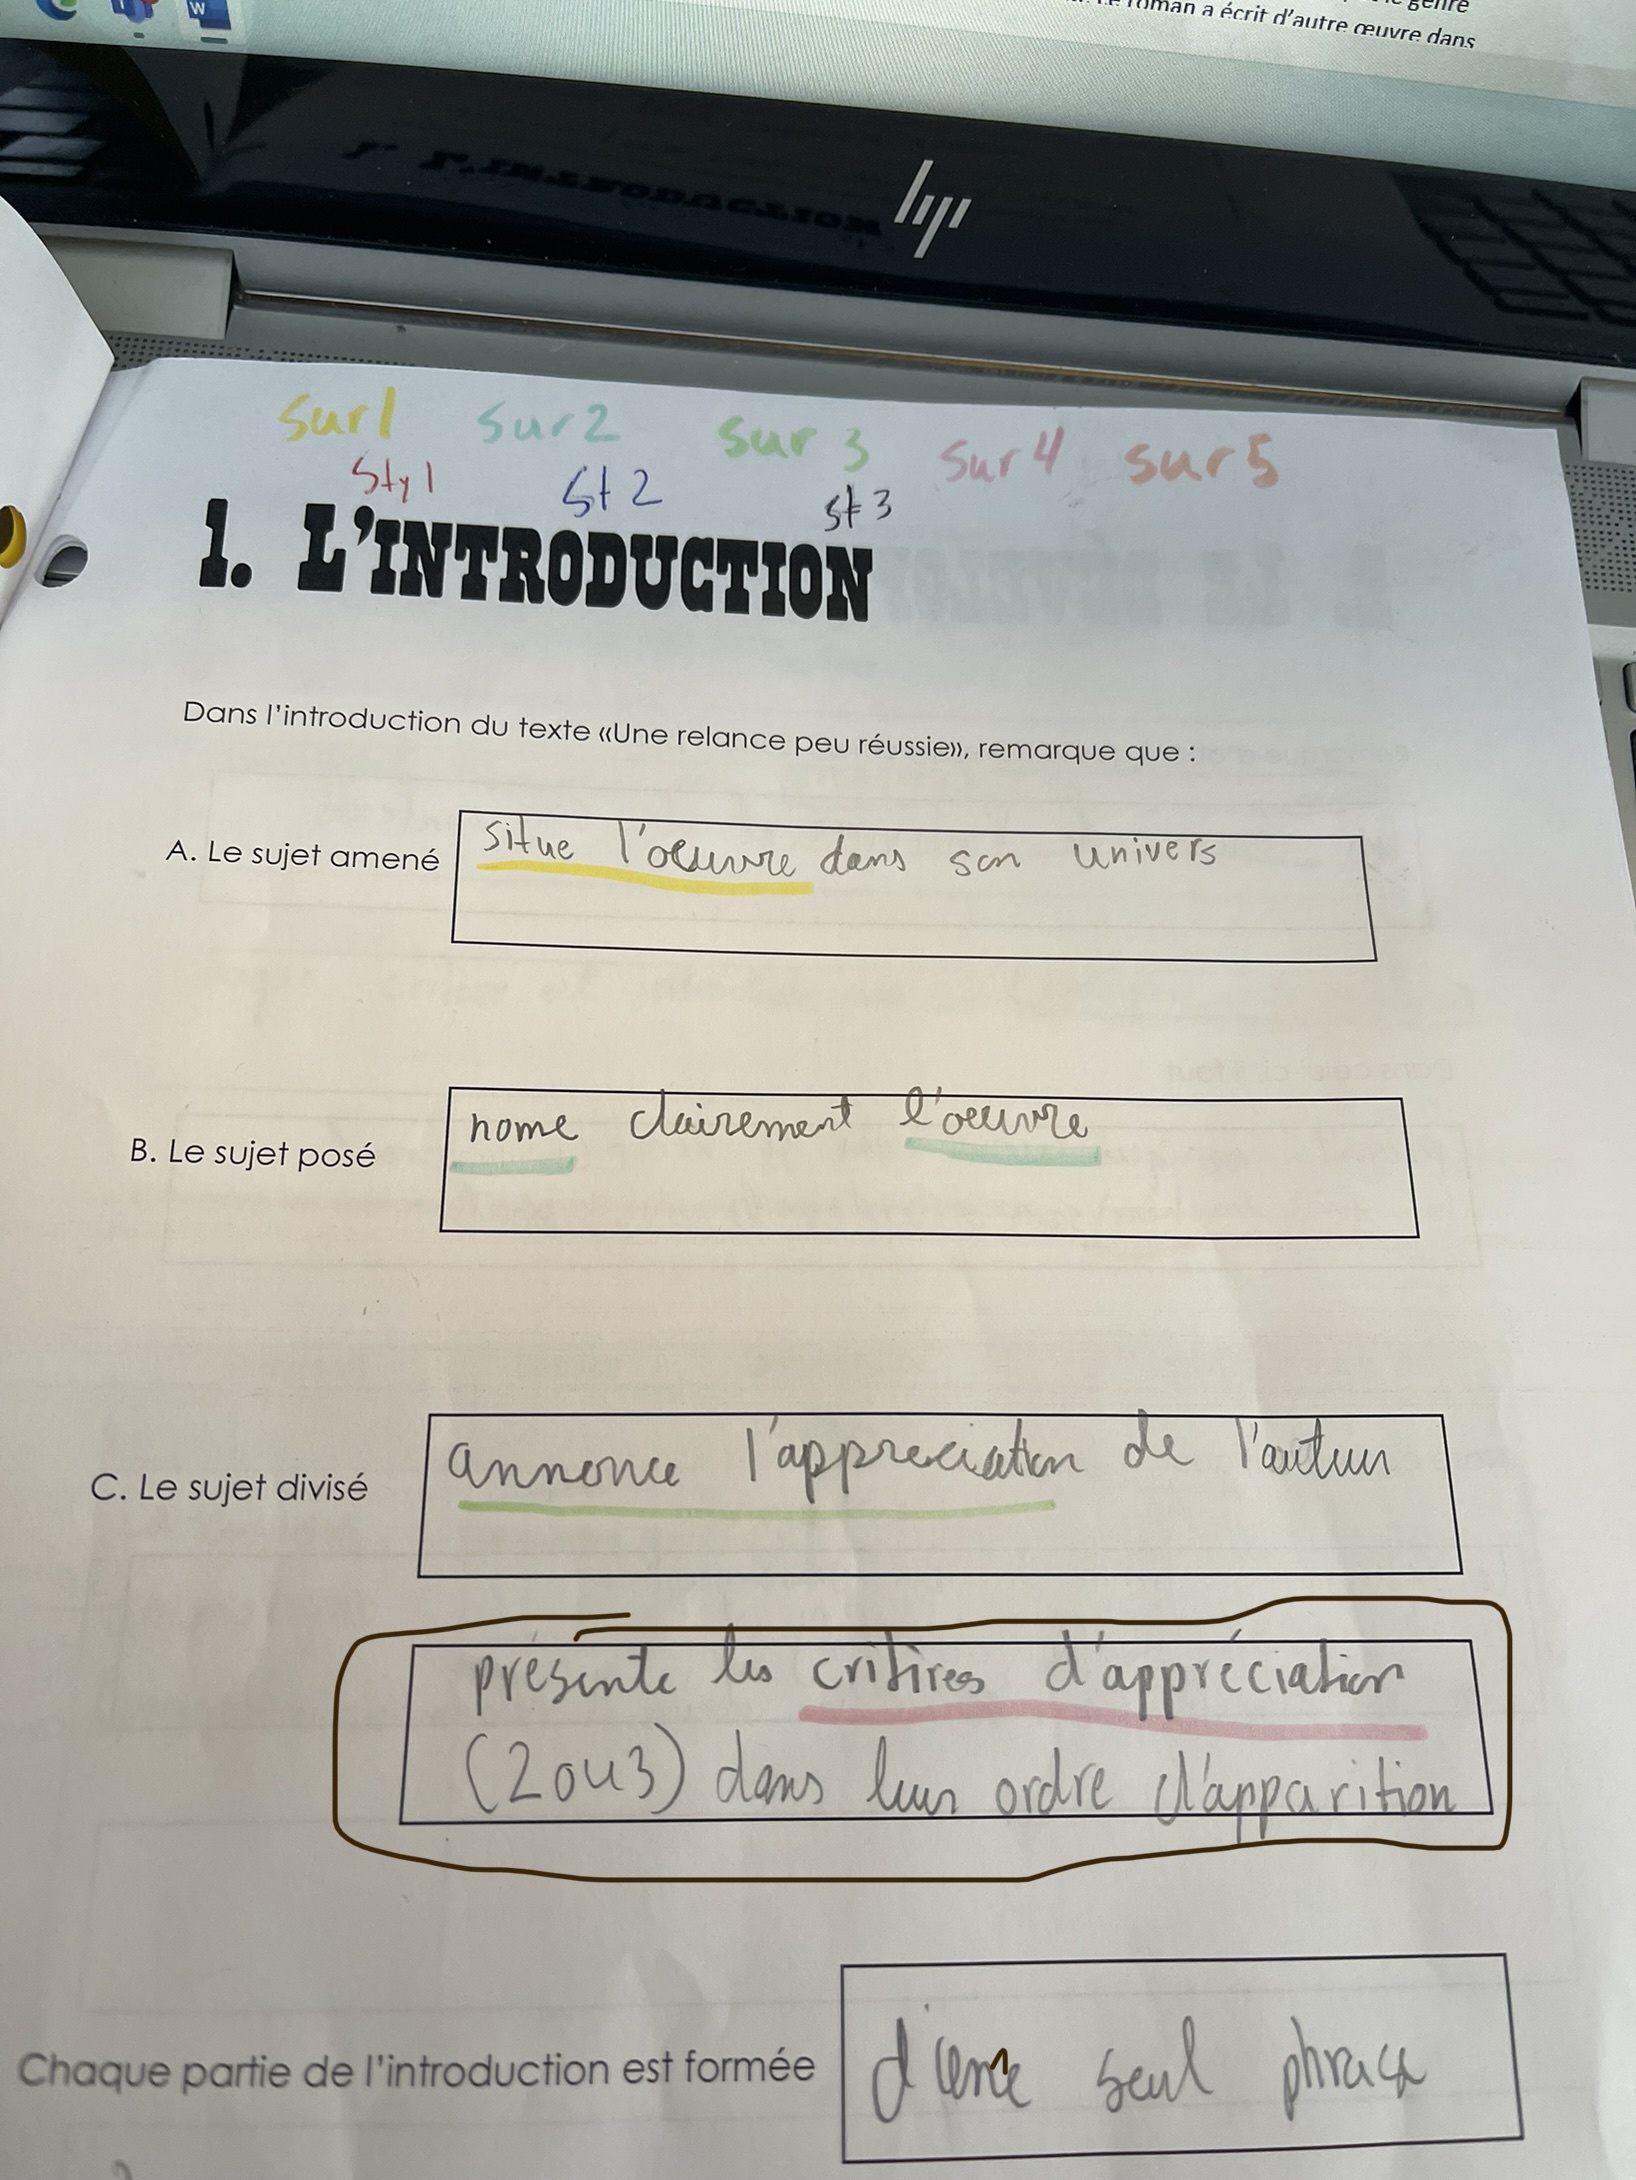 le genre
roman a écrit d'autre œuvre dans
W
hp
sur1 sur2 sur 3 sur4 sur5
Sty1 St2 st3
1. L'INTRODUCTION
Dans l'introduction du texte «Une relance peu réussie», remarque que :
A. Le sujet amené
situe l'oeuvre dans son univers
B. Le sujet posé
nome clairement l'oeuvre
C. Le sujet divisé
annonce l'appreciation de l'auteur
présente les critères d'appréciation
(2 ou 3) dans leur ordre d'apparition
Chaque partie de l'introduction est formée
d'une seul phrase